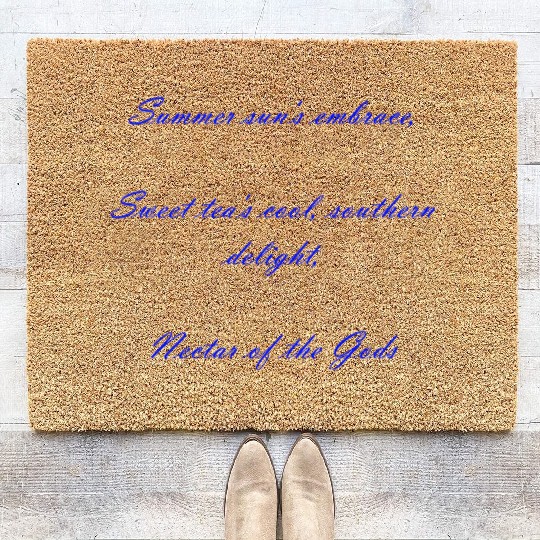 Summer sun's embrace,
Sweet tea's cool, southern
delight,
Nectar of the Gods